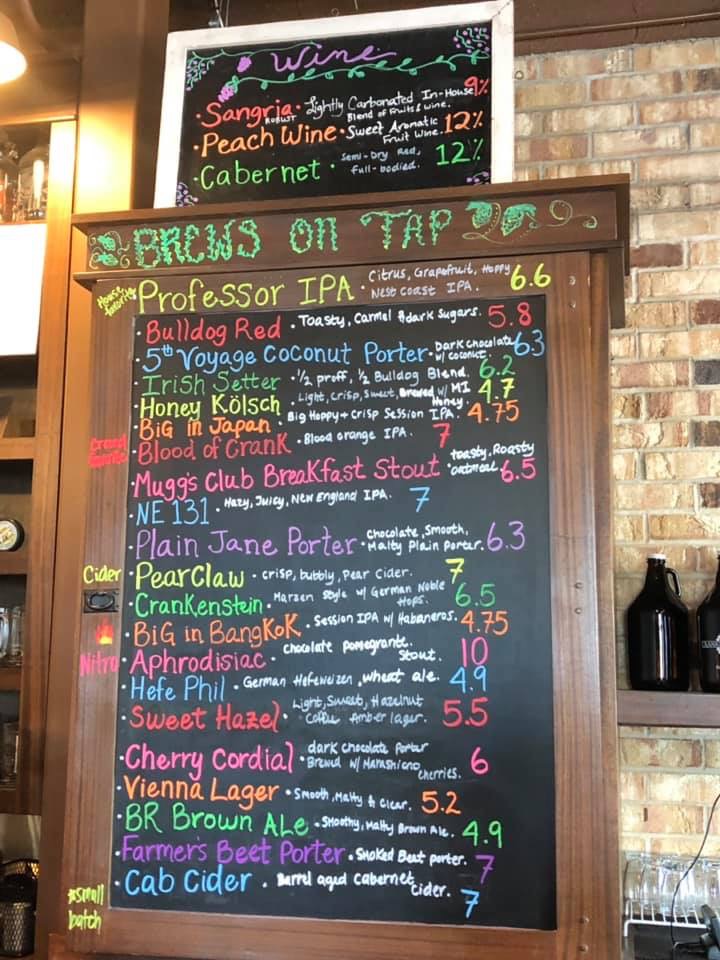 Wine
• Sangria • Lightly Carbonated In-House 9%
ROBUST Blend of Fruits & wine.
• Peach Wine • Sweet Aromatic 12%
Fruit Wine.
• Cabernet • Semi-Dry Red, 12%
full-bodied.
BREWS ON TAP
House favorite Professor IPA • Citrus, Grapefruit, Hoppy 6.6
West Coast IPA.
• Bulldog Red • Toasty, Carmel & dark Sugars. 5.8
• 5th Voyage Coconut Porter • Dark chocolate 6.3
w/ coconut.
• Irish Setter • 1/2 proff, 1/2 Bulldog Blend. 6.2
• Honey Kölsch • Light, Crisp, Sweet, Brewed w/ MI 4.7
Honey.
• BiG in Japan • Big Hoppy + Crisp Session IPA. 4.75
Crowd favorite • Blood of Crank • Blood orange IPA. 7
• Muggs Club Breakfast Stout • toasty, Roasty 6.5
oatmeal
• NE 131 • Hazy, Juicy, New England IPA. 7
• Plain Jane Porter • chocolate, Smooth, 6.3
Malty Plain Porter.
Cider • PearClaw • crisp, bubbly, Pear Cider. 7
• Crankenstein • Marzen Style w/ German Noble 6.5
Hops.
• BiG in BangKoK • Session IPA w/ Habaneros. 4.75
Nitro • Aphrodisiac • chocolate pomegrante 10
Stout.
• Hefe Phil • German Hefeweizen, wheat ale. 4.9
• Sweet Hazel • Light, Sweet, Hazelnut 5.5
Coffee Amber lager.
• Cherry Cordial • dark chocolate Porter 6
Brewed w/ Marashiono
cherries.
• Vienna Lager • Smooth, Malty & Clear. 5.2
• BR Brown Ale • Smoothy, Malty Brown Ale. 4.9
• Farmer's Beet Porter • Smoked Beet porter. 7
• Cab Cider • Barrel aged cabernet 7
cider.
#small
batch